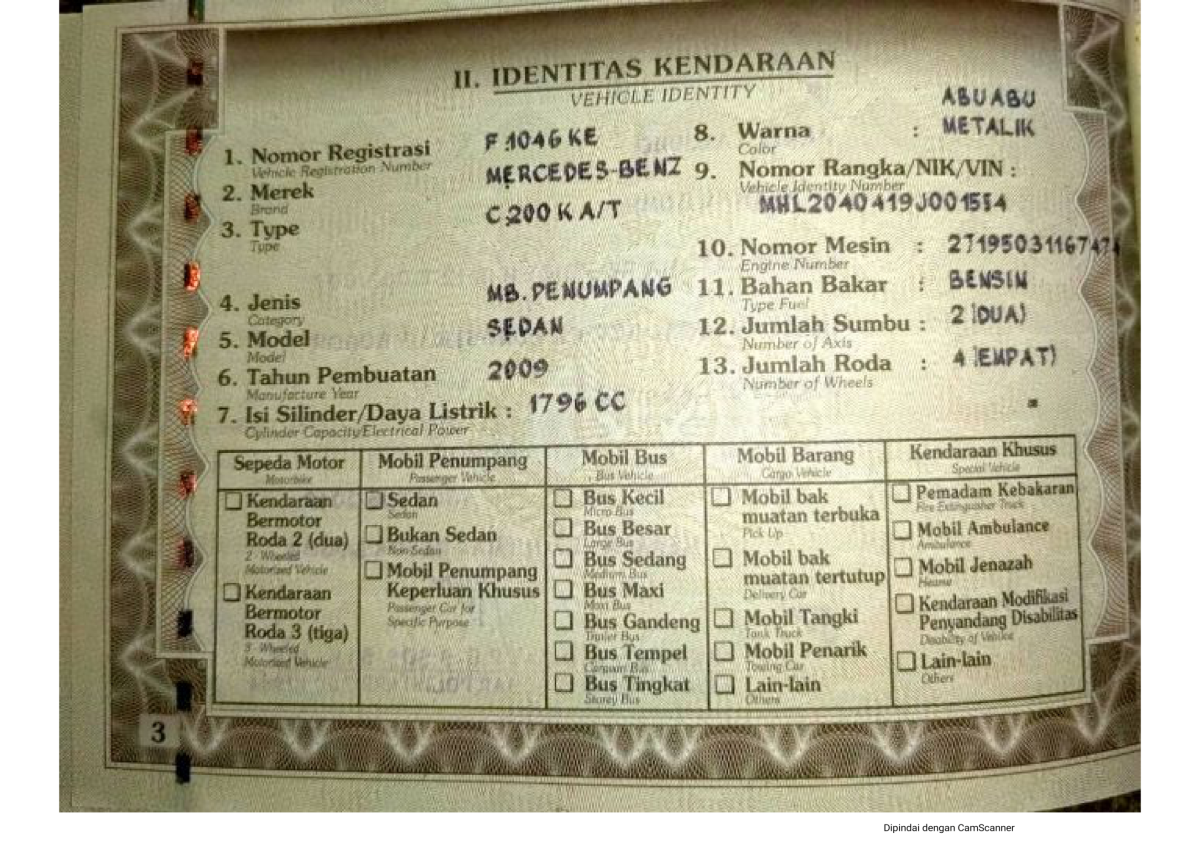 II. IDENTITAS KENDARAAN
VEHICLE IDENTITY
1. Nomor Registrasi F 1046 KE
Vehicle Registration Number
2. Merek MERCEDES-BENZ
Brand
3. Type C 200 K A/T
Type
4. Jenis MB. PENUMPANG
Category
5. Model SEDAN
Model
6. Tahun Pembuatan 2009
Manufacture Year
7. Isi Silinder/Daya Listrik : 1796 CC
Cylinder Capacity/Electrical Power
ABU ABU
8. Warna : METALIK
Color
9. Nomor Rangka/NIK/VIN :
Vehicle Identity Number
10. Nomor Mesin :
Engine Number
11. Bahan Bakar : BENSIN
Type Fuel
12. Jumlah Sumbu : 2 (DUA)
Number of Axis
13. Jumlah Roda : 4 (EMPAT)
Number of Wheels
Sepeda Motor
Motorbike
Kendaraan
Bermotor
Roda 2 (dua)
2 - Wheeled
Motorized Vehicle
Kendaraan
Bermotor
Roda 3 (tiga)
3 - Wheeled
Motorized Vehicle
Mobil Penumpang
Passenger Vehicle
Sedan
Sedan
Bukan Sedan
Non Sedan
Mobil Penumpang
Keperluan Khusus
Passenger Car for
Specific Purpose
Mobil Bus
Bus Vehicle
Bus Kecil
Micro Bus
Bus Besar
Large Bus
Bus Sedang
Medium Bus
Bus Maxi
Maxi Bus
Bus Gandeng
Trailer Bus
Bus Tempel
Bus
Bus Tingkat
Storey Bus
Mobil Barang
Cargo Vehicle
Mobil bak
muatan terbuka
Pick Up
Mobil bak
muatan tertutup
Delivery Car
Mobil Tangki
Tank Truck
Mobil Penarik
Towing Car
Lain-lain
Others
Kendaraan Khusus
Special Vehicle
Pemadam Kebakaran
Fire Extinguisher Truck
Mobil Ambulance
Ambulance
Mobil Jenazah
Hearse
Kendaraan Modifikasi
Penyandang Disabilitas
Disability of Vehicle
Lain-lain
Others
3
Dipindai dengan CamScanner